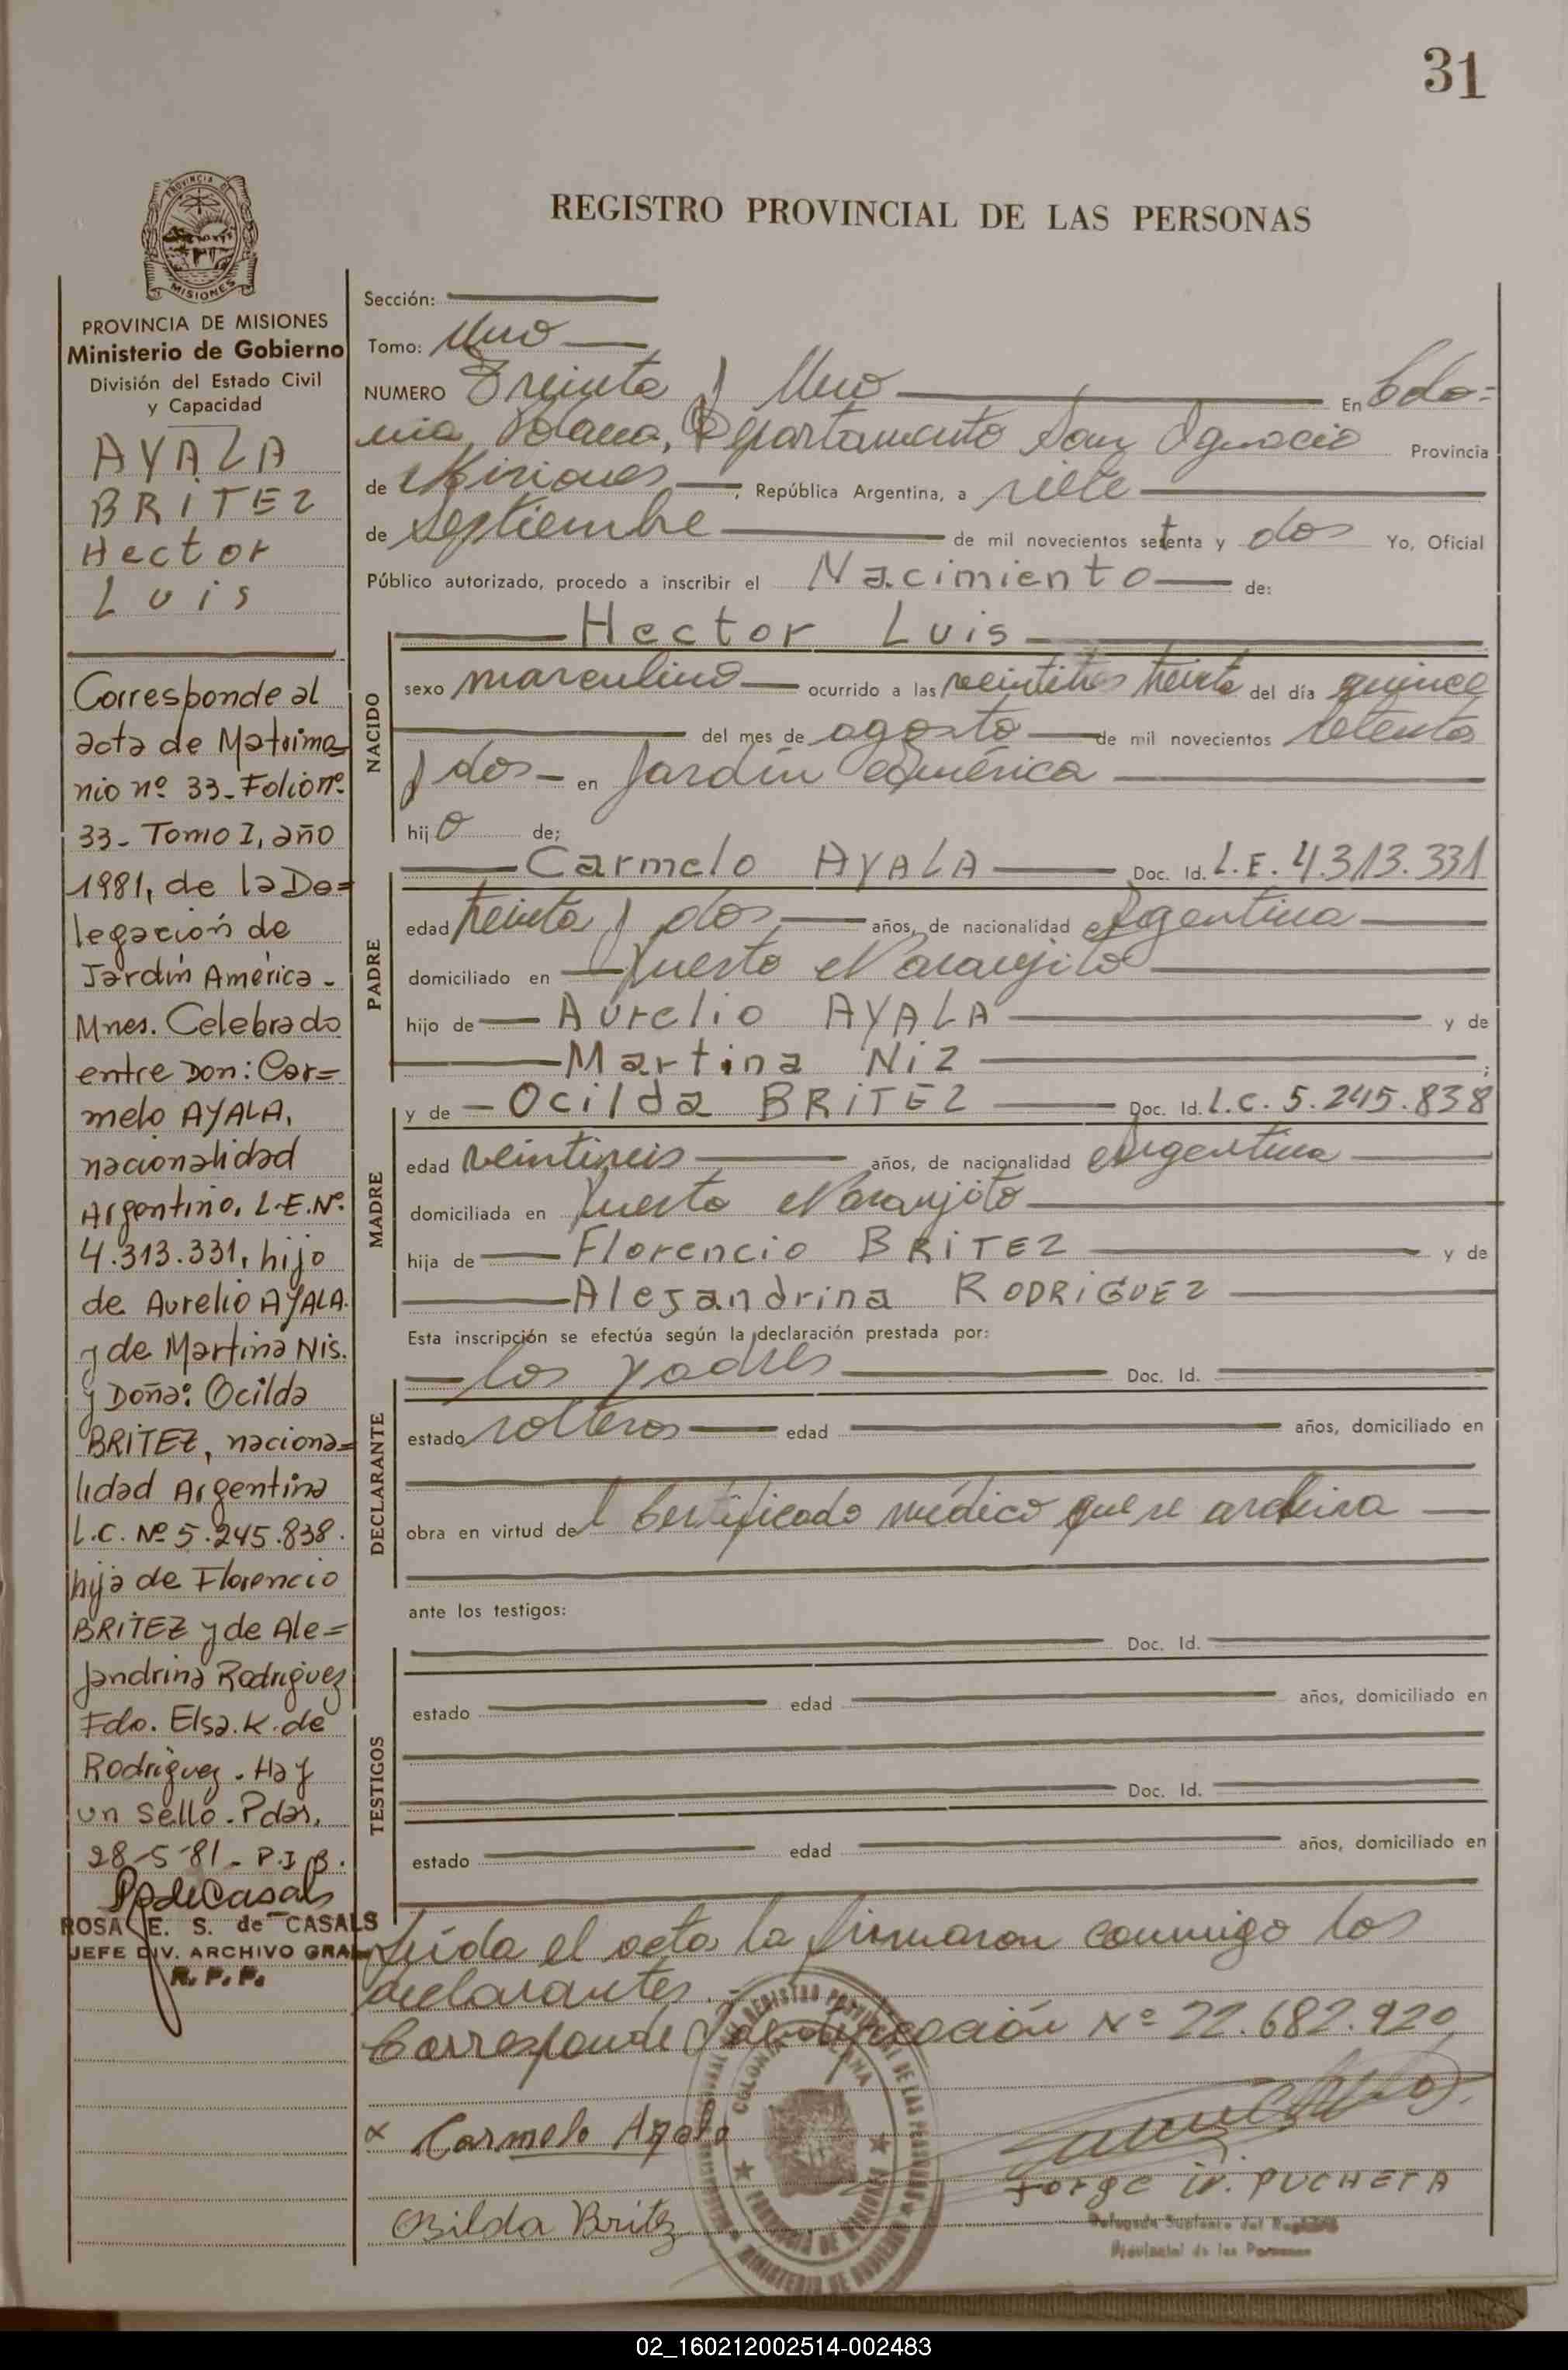 31
REGISTRO PROVINCIAL DE LAS PERSONAS
PROVINCIA DE
MISIONES
PROVINCIA DE MISIONES
Ministerio de Gobierno
División del Estado Civil
y Capacidad
AYALA
BRITEZ
Hector
Luis
Corresponde al
acta de Matrimo
nio nº 33_ Folio nº
33_ Tomo I, año
1981, de la De=
legación de
Jardín América -
Mnes. Celebrado
entre Don: Car=
melo AYALA,
nacionalidad
Argentino, L.E.Nº
4.313.331, hijo
de Aurelio AYALA.
y de Martina Nis.
y Doña: Ocilda
BRITEZ, naciona=
lidad Argentina
L.C. Nº 5.245.838.
hija de Florencio
BRITEZ y de Ale=
jandrina Rodriguez
Fdo. Elsa. K. de
Rodriguez. Hay
un Sello. Pdas,
28-5-81_ P.I.B.
ROSA E. S. de CASALS
JEFE DIV. ARCHIVO GRAL
R. P. P.
Sección:
Tomo: Uno
NUMERO Treinta y Uno En Colo=
nia Polana, Departamento San Ignacio Provincia
de Misiones, República Argentina, a siete
de Septiembre de mil novecientos setenta y dos Yo, Oficial
Público autorizado, procedo a inscribir el Nacimiento de:
NACIDO
Hector Luis
sexo masculino ocurrido a las veintitres treinta del día quince
del mes de agosto de mil novecientos setenta
y dos en Jardín América
hijo de:
PADRE
Carmelo AYALA Doc. Id. L.E. 4.313.331
edad treinta y dos años, de nacionalidad Argentina
domiciliado en Puerto Naranjito
hijo de Aurelio AYALA y de
Martina Niz;
MADRE
y de Ocilda BRITEZ Doc. Id. L.C. 5.245.838
edad veintiseis años, de nacionalidad Argentina
domiciliada en Puerto Naranjito
hija de Florencio BRITEZ y de
Alejandrina RODRIGUEZ
Esta inscripción se efectúa según la declaración prestada por:
DECLARANTE
los padres Doc. Id.
estado solteros edad años, domiciliado en
obra en virtud del Certificado médico que se archiva
ante los testigos:
TESTIGOS
Doc. Id.
estado edad años, domiciliado en
Doc. Id.
estado edad años, domiciliado en
Leida el acta la firmaron conmigo los
declarantes.-
Corresponde Identificación Nº 22.682.920
x Carmelo Ayala
Osilda Britez
Jorge W. PUCHETA
Delegado Suplente del Registro
Provincial de las Personas
02_160212002514-002483